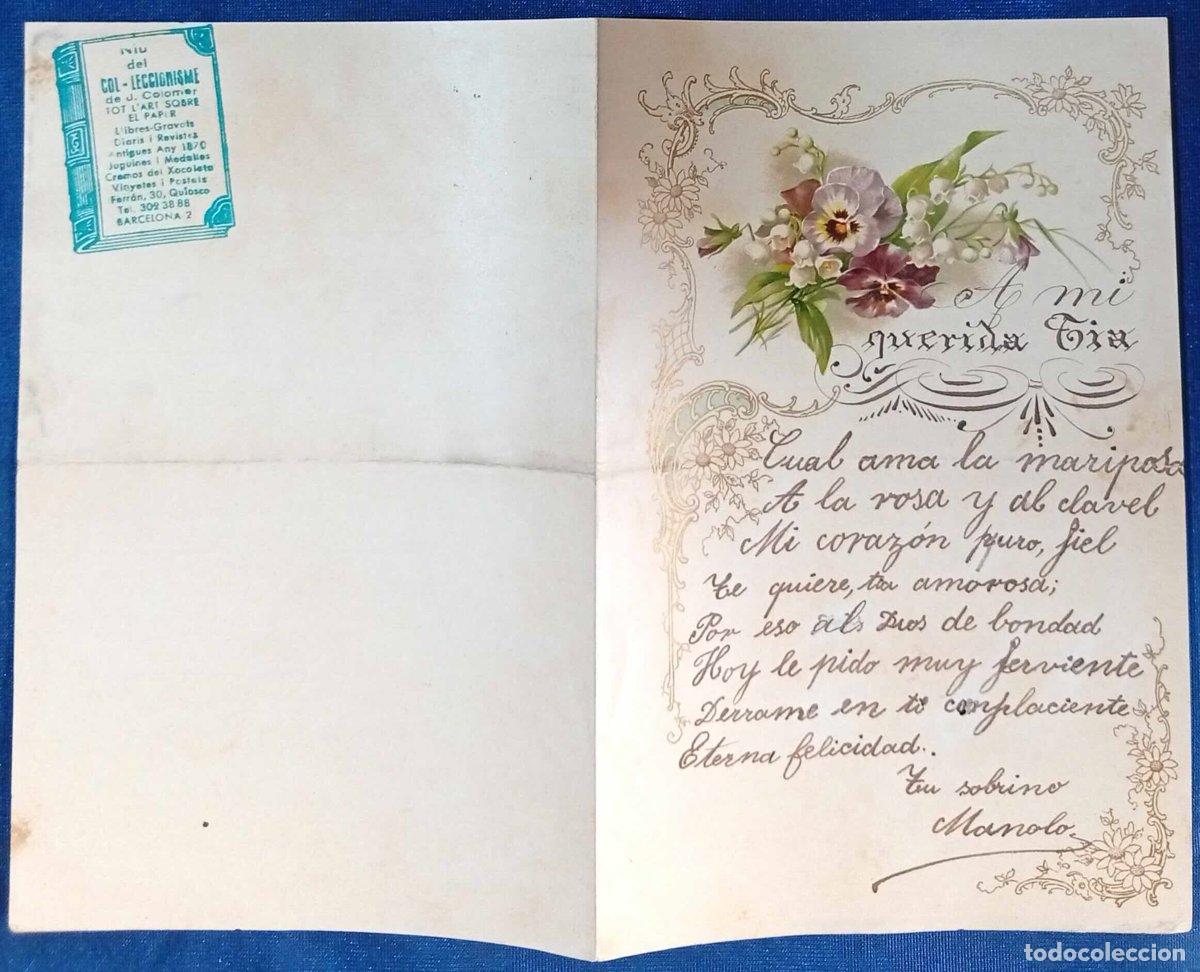 NIU
del
COL-LECCIONISME
de J. Colomer
TOT L'ART SOBRE
EL PAPER
Llibres-Gravats
Diaris i Revistes
Antigues Any 1870
Joguines i Medalles
Cromos del Xocolata
Vinyetes i Postals
Ferrán, 30, Quiosco
Tel. 302 38 88
BARCELONA 2
A mi
querida Tia
Cual ama la mariposa
A la rosa y al clavel
Mi corazón puro, fiel
Te quiere, tia amorosa;
Por eso al Dios de bondad
Hoy le pido muy ferviente
Derrame en ti complaciente
Eterna felicidad.
Tu sobrino
Manolo
todocoleccion